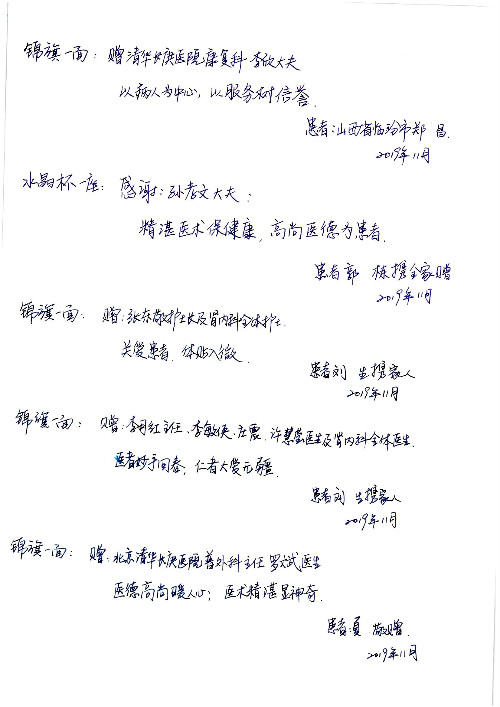 锦旗一面：赠清华长庚医院康复科李欣大夫
以病人为中心，以服务树信誉.
患者：山西省临汾市郑 昌.
2019年11月
水晶杯一座：感谢：孙孝文大夫：
精湛医术保健康，高尚医德为患者.
患者郭 栋携全家赠
2019年11月
锦旗一面： 赠：张东敬护士长及肾内科全体护士.
关爱患者 体贴入微.
患者刘 生携家人
2019年11月
锦旗一面： 赠：李月红主任、李敏侠、庄震、许慧莹医生及肾内科全体医生.
医者妙手回春，仁者大爱无疆.
患者刘 生携家人
2019年11月
锦旗一面： 赠：北京清华长庚医院普外科主任罗斌医生
医德高尚暖人心；医术精湛显神奇.
患者 敬赠.
2019年11月